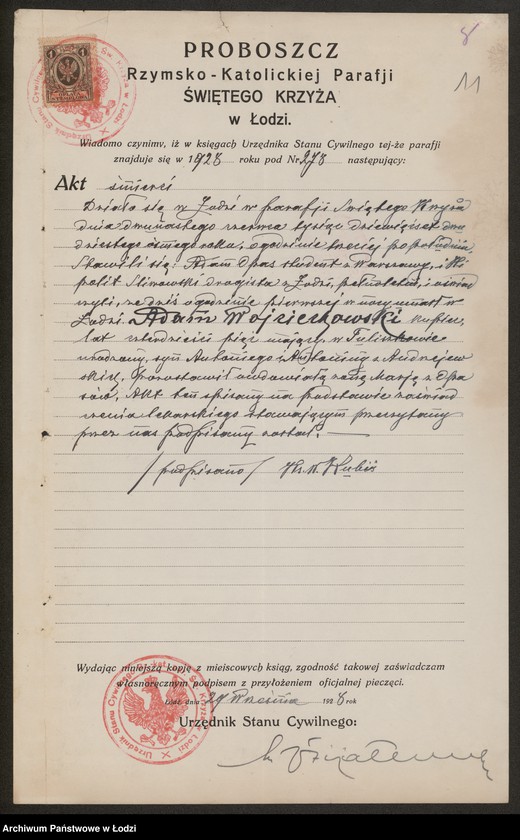 8
11
PROBOSZCZ
Rzymsko-Katolickiej Parafji
ŚWIĘTEGO KRZYŻA
w Łodzi.
Wiadomo czynimy, iż w księgach Urzędnika Stanu Cywilnego tej-że parafji
znajduje się w 1928 roku pod Nr 278 następujący:
Akt śmierci
Działo się w Łodzi w parafji Świętego Krzyża
dnia dwunastego czerwca tysiąc dziewięćset dwu
dziestego ósmego roku, o godzinie trzeciej po południu
Stawili się: Adam Opas student z Warszawy, i Hi
polit Śliwowski drogista z Łodzi, pełnoletni, i oświad
czyli, że dziś o godzinie pierwszej w nocy umarł w
Łodzi Adam Wojciechowski kupiec,
lat czterdzieści pięć mający, w Tuliszkowie
urodzony, syn Antoniego i Antoniny z Modrzejew
skich. Pozostawił owdowiałą żonę Marję z Opa
sów. Akt ten spisany na podstawie zaświad
czenia lekarskiego stawającym przeczytany
przez nas podpisany został.
/podpisano/ Ks. W.
Wydając niniejszą kopję z miejscowych ksiąg, zgodność takowej zaświadczam
własnoręcznym podpisem z przyłożeniem oficjalnej pieczęci.
Łódź, dnia 29 Września 1928 rok
Urzędnik Stanu Cywilnego:
Urzędnik Stanu Cywilnego Św. Krzyża w Łodzi
Archiwum Państwowe w Łodzi